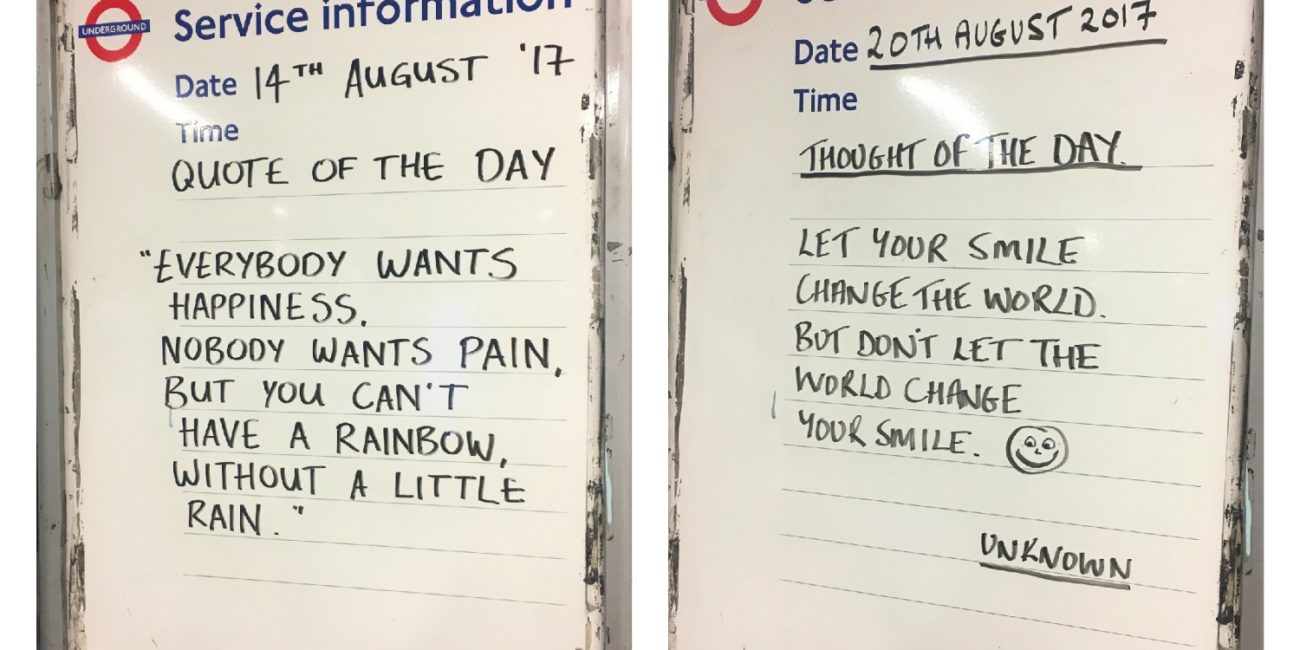 UNDERGROUND
Service information
Date 14TH AUGUST '17
Time
QUOTE OF THE DAY
"EVERYBODY WANTS
HAPPINESS.
NOBODY WANTS PAIN,
BUT YOU CAN'T
HAVE A RAINBOW,
WITHOUT A LITTLE
RAIN."
Date 20TH AUGUST 2017
Time
THOUGHT OF THE DAY.
LET YOUR SMILE
CHANGE THE WORLD.
BUT DON'T LET THE
WORLD CHANGE
YOUR SMILE.
UNKNOWN